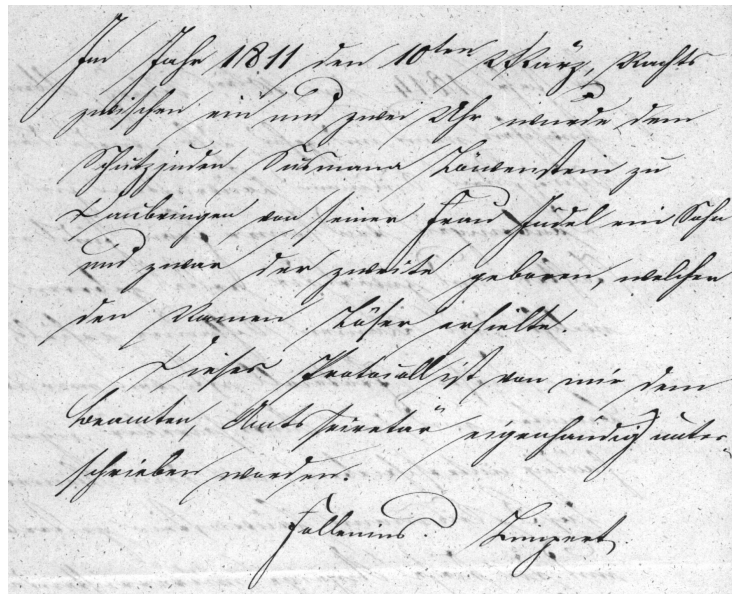 Im Jahr 1811 den 10ten März, Nachts
zwischen ein und zwei Uhr wurde dem
Schutzjuden Susmann Löwenstein zu
Laubringen von seiner Frau Jüdel ein Sohn
und zwar der zweite geboren, welcher
den Namen Löser erhielte.
Dieses Protocoll ist von mir dem
Beamten, Amtssecretär eigenhändig unter-
schrieben worden.
Follenius. Limpert